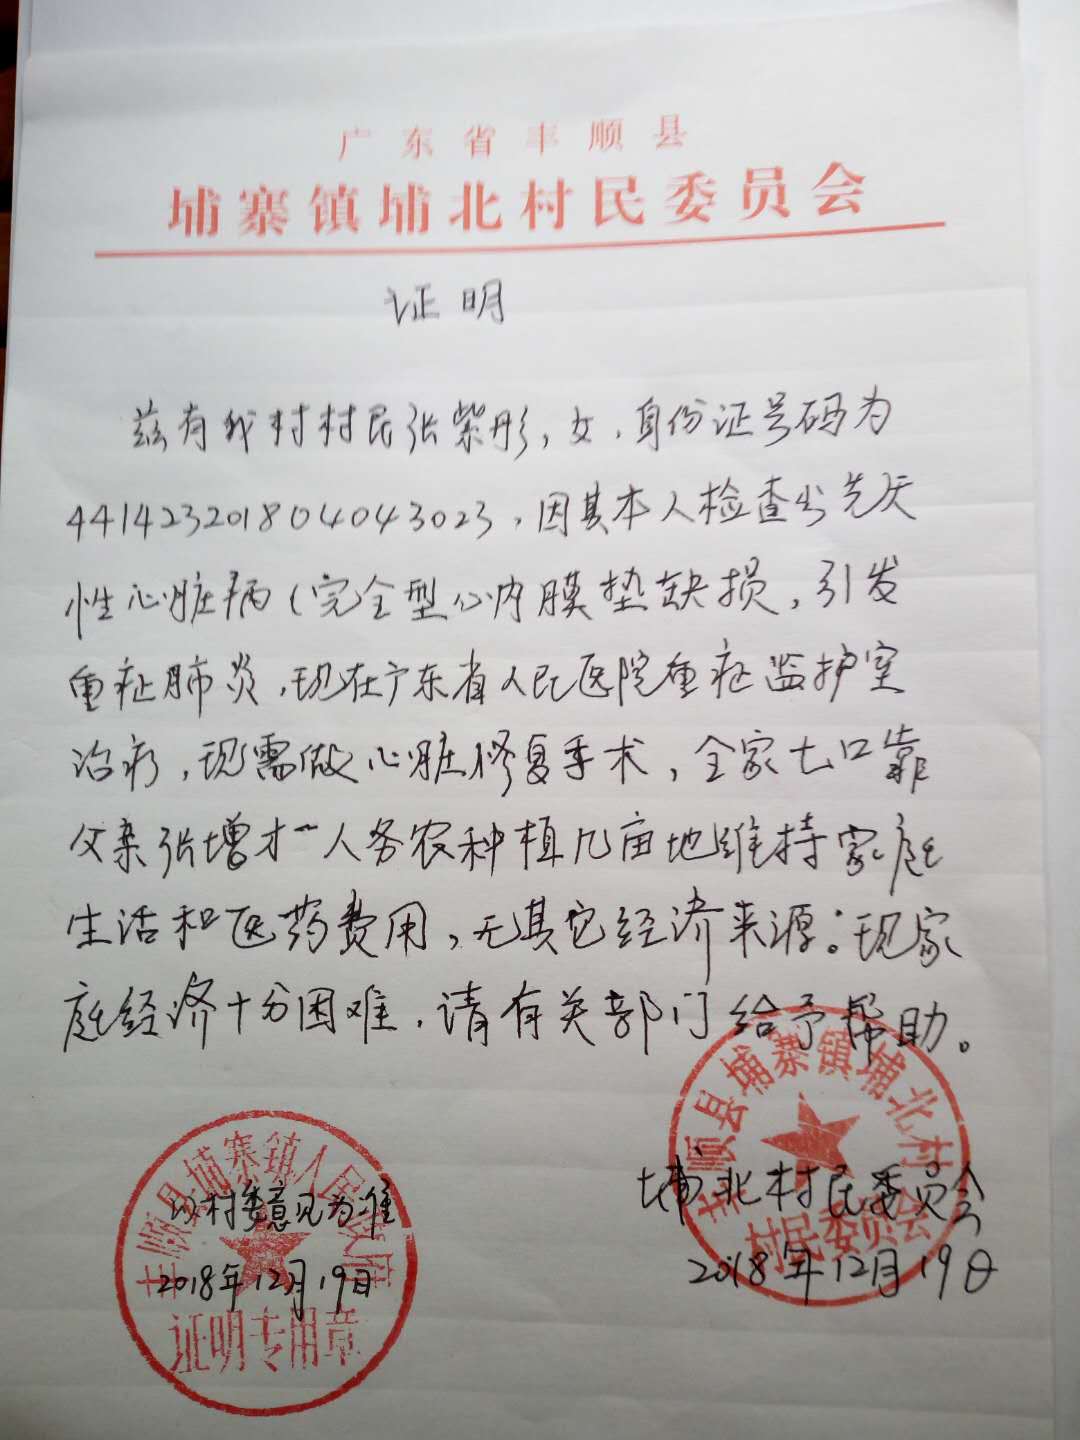 广东省丰顺县
埔寨镇埔北村民委员会
证明
兹有我村村民张紫彤,女,身份证号码为
441423201804043023,因其本人检查出先天
性心脏病(完全型心内膜垫缺损,引发
重症肺炎,现在广东省人民医院重症监护室
治疗,现需做心脏修复手术,全家七口靠
父亲张增才一人务农种植几亩地维持家庭
生活和医药费用,无其它经济来源。现家
庭经济十分困难,请有关部门给予帮助。
埔北村民委员会
2018年12月19日
丰顺县埔寨镇埔北村
村民委员会
丰顺县埔寨镇人民政府
以村委意见为准
2018年12月19日
证明专用章